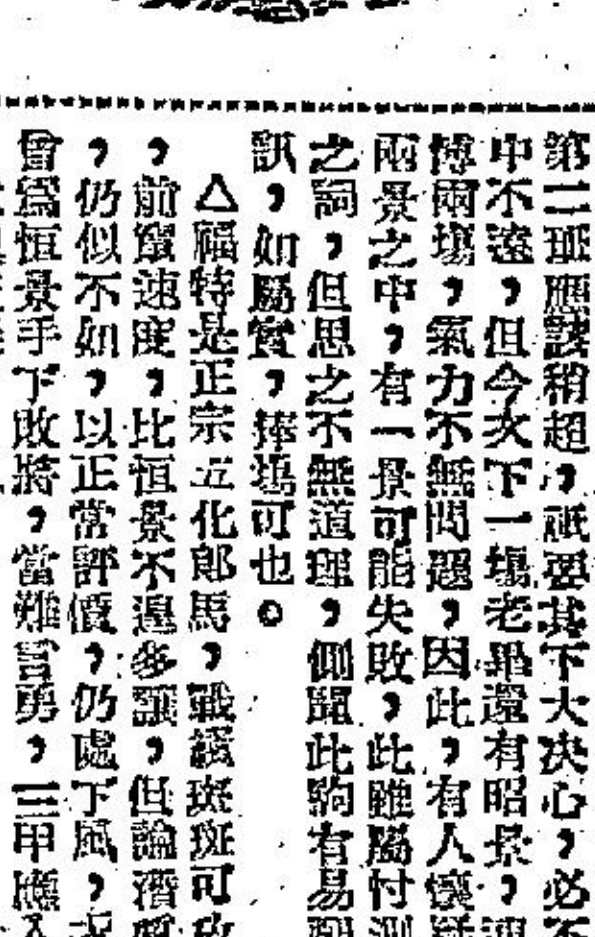 第二班應該稍超，祇要其下大決心，必不
中不遠，但今次下一塲老畢還有昭景，速
博兩塲，氣力不無問題，因此，有人懷疑
兩景之中，有一景可能失敗，此雖屬忖測
之詞，但思之不無道理，側聞此駒有易
訊，如屬實，捧塲可也。
△福特是正宗立化郎馬，戰績斑斑可攷
，前躍速度，比恒景不遑多讓，但論潛質
，仍似不如，以正常評價，仍處下風，
曾爲恒景手下敗將，當難言勇，三甲應入